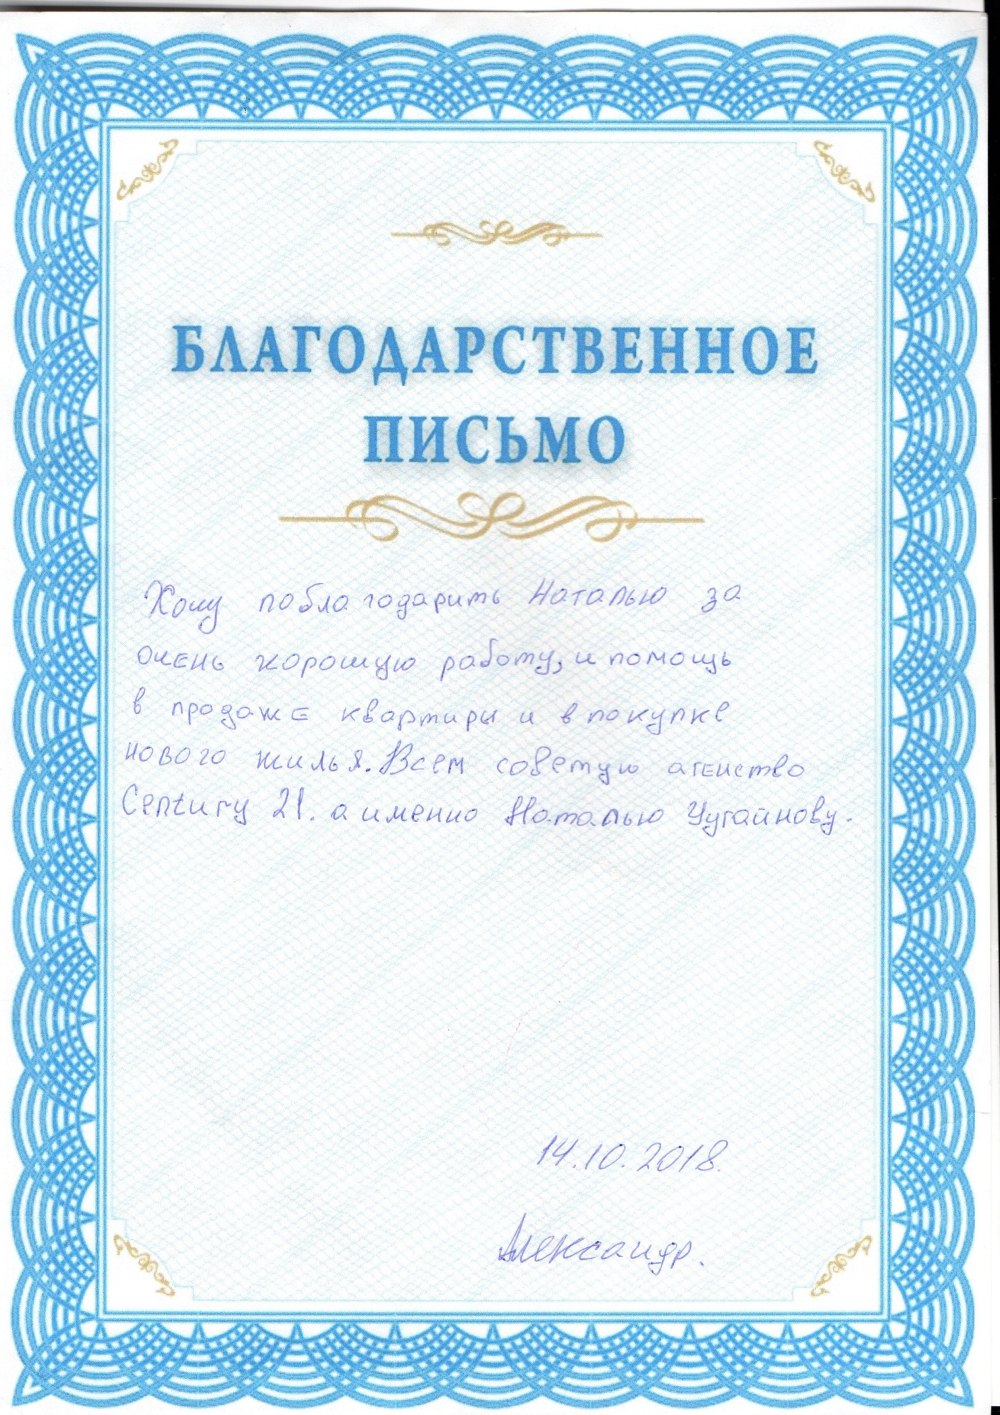 БЛАГОДАРСТВЕННОЕ
ПИСЬМО
Хочу поблагодарить Наталью за
очень хорошую работу, и помощь
в продаже квартиры и в покупке
нового жилья. Всем советую агенство
Century 21. а именно Наталью Чугайнову.
14.10.2018.
Александр.